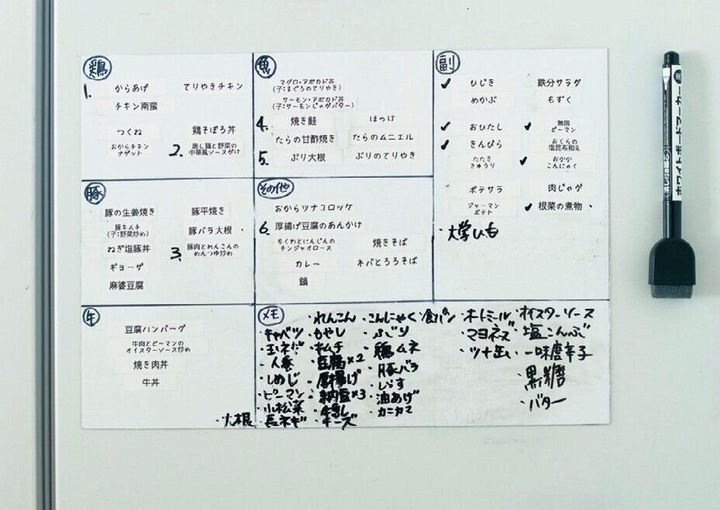 鶏
1. からあげ てりやきチキン
チキン南蛮
つくね 鶏そぼろ丼
おからチキン
ナゲット
2. 蒸し鶏と野菜の
中華風ソースがけ
魚
マグロ・アボカド丼
(子:まぐろのてりやき)
サーモン・アボカド丼
(子:サーモンじゃがバター)
4. 焼き鮭 ほっけ
たらの甘酢焼き たらのムニエル
5. ぶり大根 ぶりのてりやき
副
✓ ひじき 鉄分サラダ
めかぶ もずく
✓ おひたし ✓ 無限
ピーマン
✓ きんぴら おくらの
塩昆布和え
たたき
きゅうり
✓ おかか
こんにゃく
ポテサラ 肉じゃが
ジャーマン
ポテト
✓ 根菜の煮物
・大学いも
豚
豚の生姜焼き 豚平焼き
豚キムチ
(子:野菜炒め)
豚バラ大根
ねぎ塩豚丼
3. 豚肉とれんこんの
めんつゆ炒め
ギョーザ
麻婆豆腐
その他
おからツナコロッケ
6. 厚揚げ豆腐のあんかけ
ちくわとにんじんの
チンジャオロース
焼きそば
カレー ネバとろろそば
鍋
牛
豆腐ハンバーグ
牛肉とピーマンの
オイスターソース炒め
焼き肉丼
牛丼
メモ
・キャベツ
・玉ネギ
・人参
・しめじ
・ピーマン
・小松菜
・大根 ・長ネギ
・れんこん
・もやし
・キムチ
・豆腐×2
・厚揚げ
・納豆×3
・チーズ
・こんにゃく
・ぶり
・鶏ムネ
・豚バラ
・油あげ
・カニカマ
・食パン
・マヨネーズ
・ツナ缶
・オイスターソース
・塩こんぶ
・一味唐辛子
・黒糖
・バター
ホワイトボードマーカー